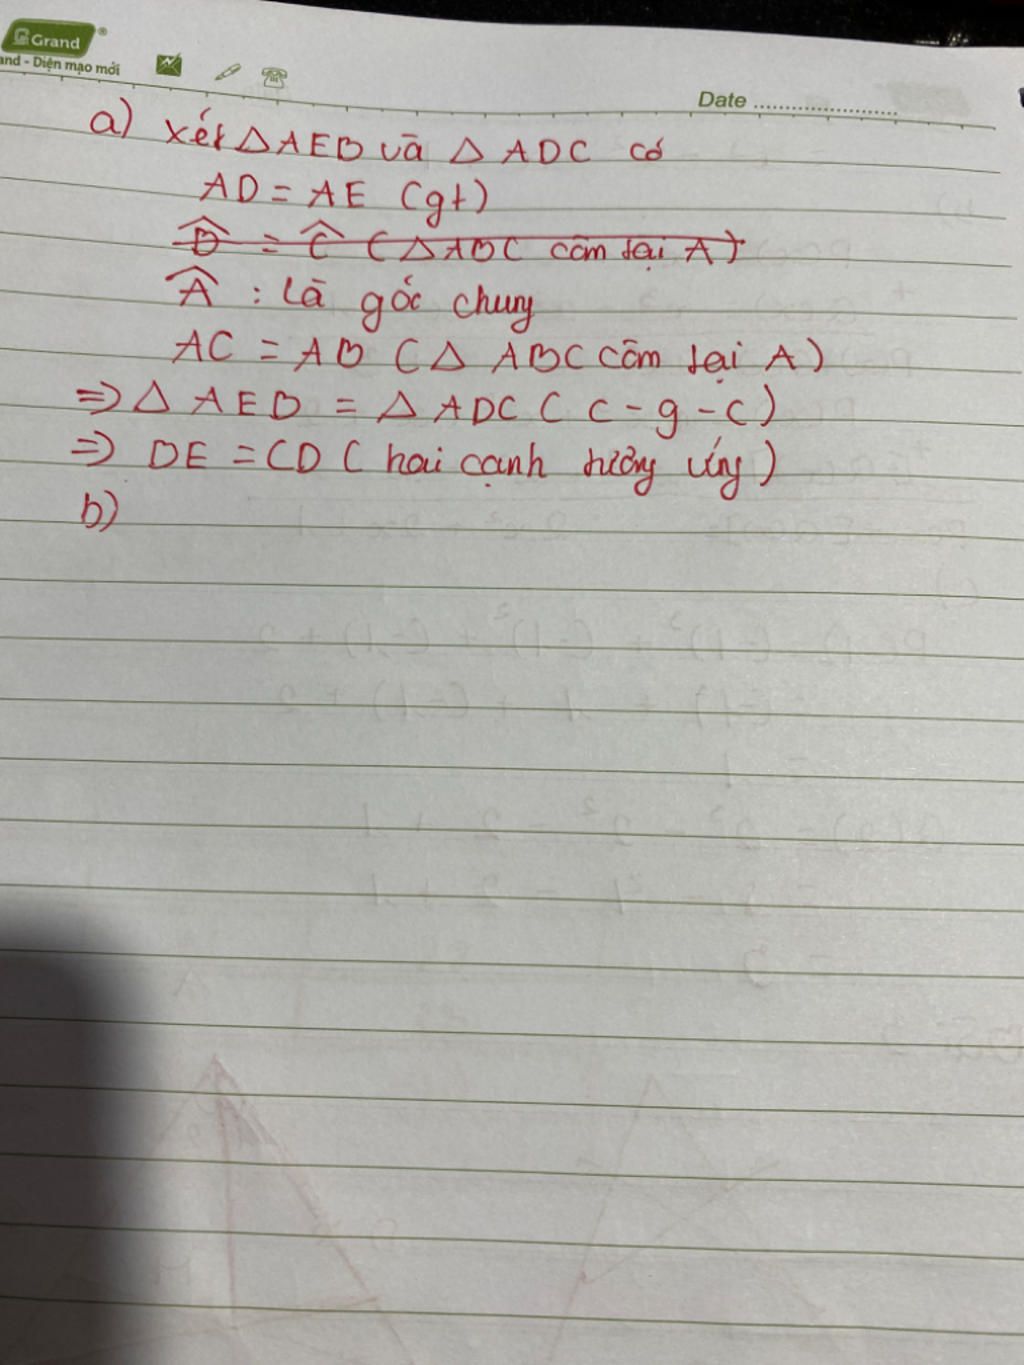 Grand
and - Diện mạo mới
Date
a) xét △AEB và △ ADC có
AD = AE (gt)
B̂ = Ĉ (△ABC cân tại A)
Â : là góc chung
AC = AB (△ ABC cân tại A)
⇒ △ AEB = △ ADC ( c - g - c )
⇒ BE = CD ( hai cạnh tương ứng )
b)